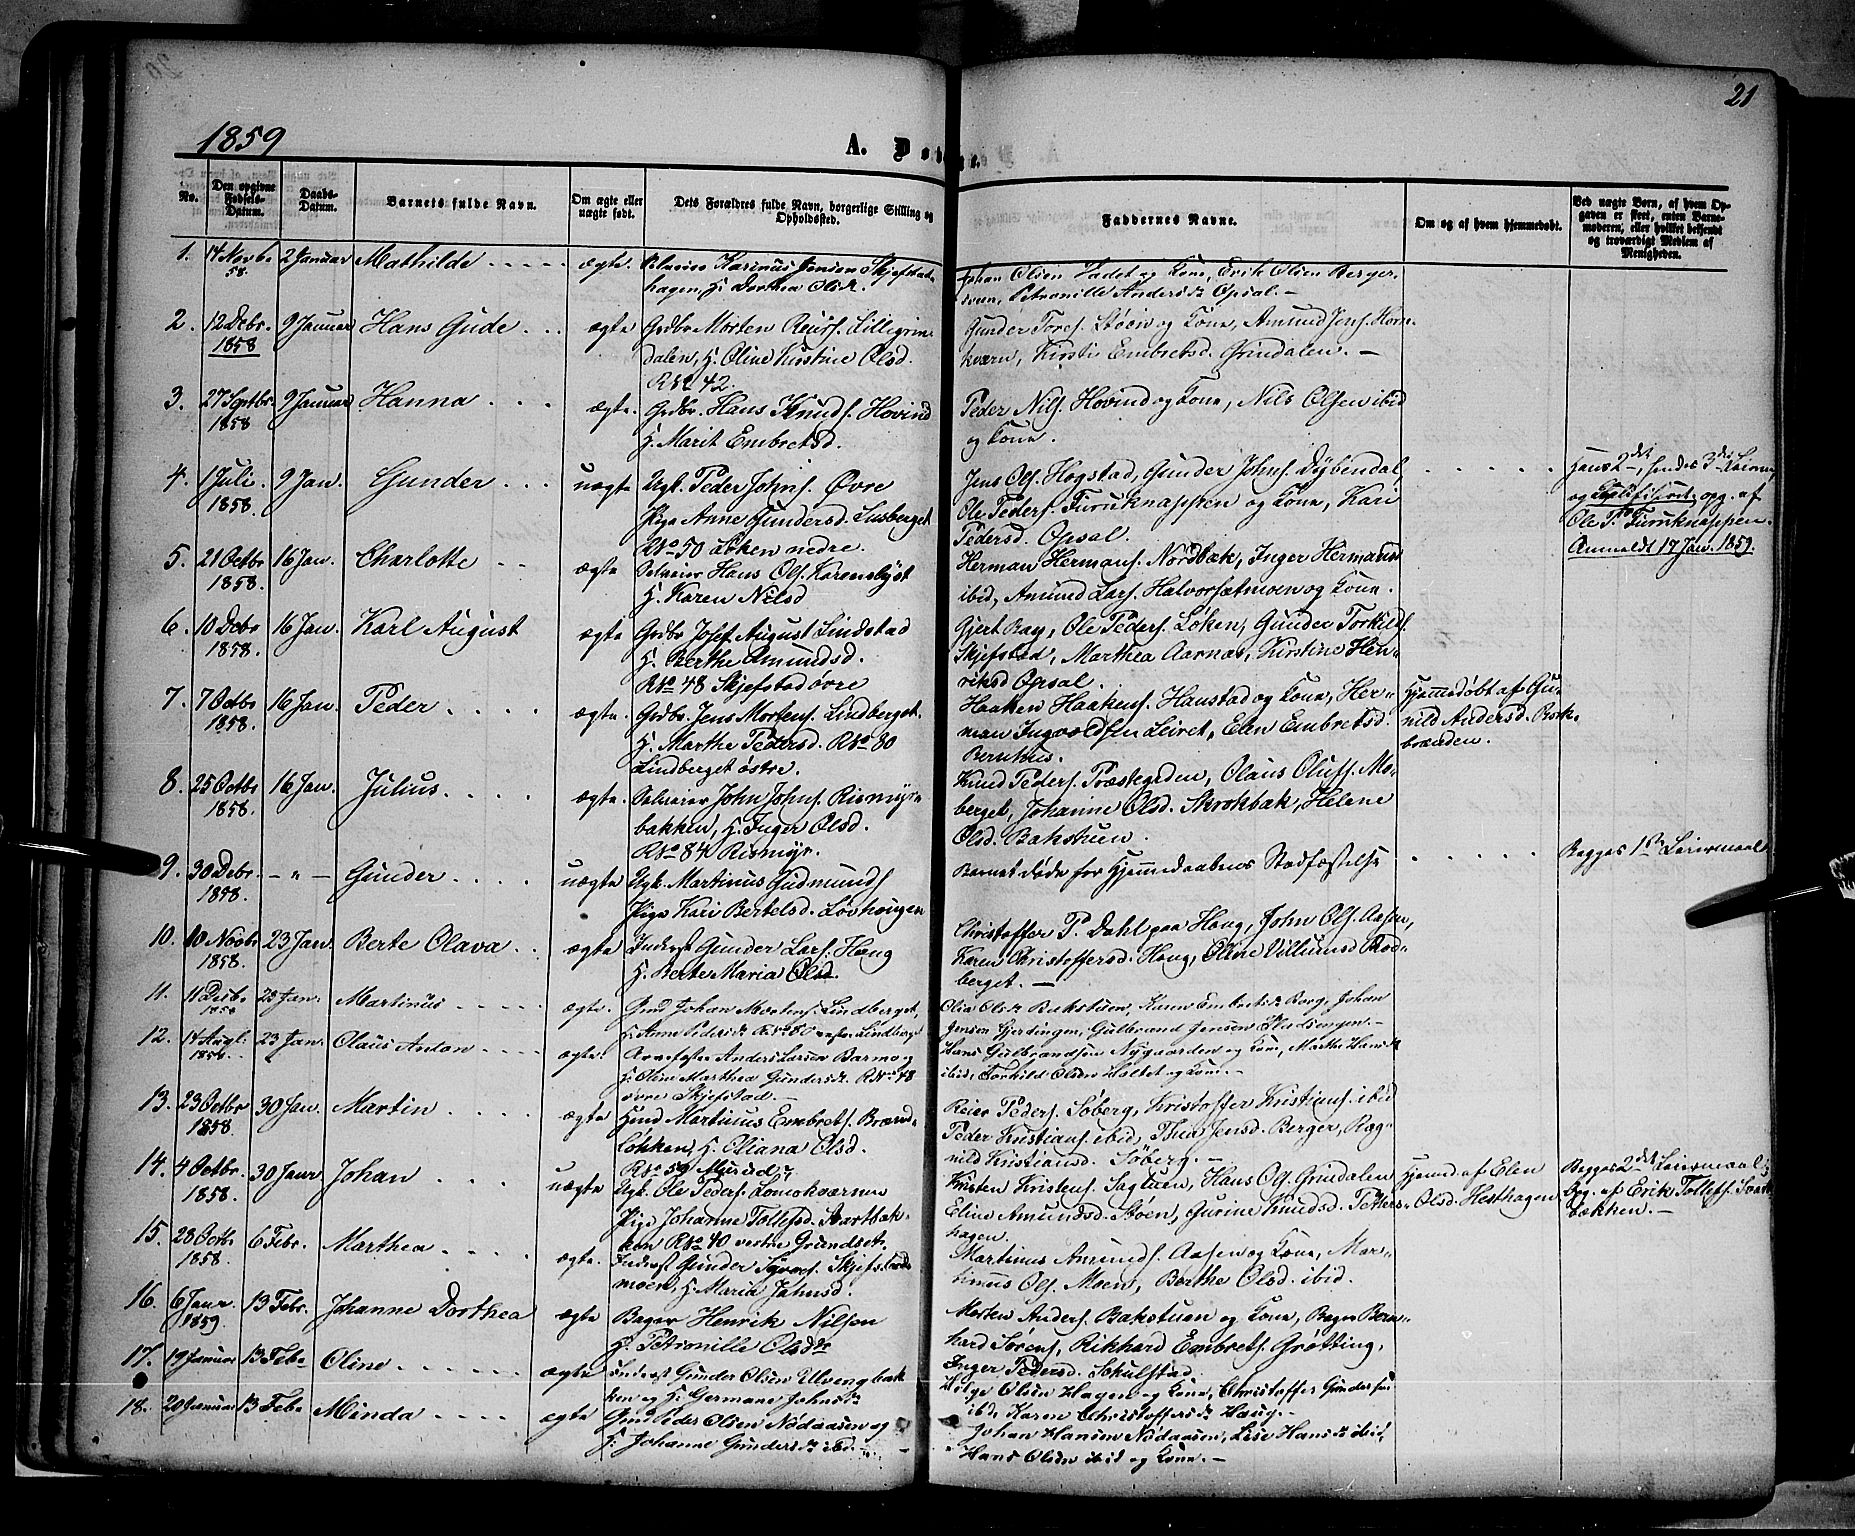 21
1859
A. Døbte.
No.
Den opgivne Fødsels-Datum.
Daabs-Datum.
Barnets fulde Navn.
Om ægte eller uægte født.
Dets Forældres fulde Navn, borgerlige Stilling og Opholdssted.
Faddernes Navne.
Om og af hvem hjemmedøbt.
Ved uægte Børn, af hvem Opgaven er skeet, enten Barnemoderen, eller hvilket bekjendt og troværdigt Medlem af Menigheden.
1. 14 Novbr 58. 2 Januar Mathilde ægte. Selveier Karinus Jensen Skjefstad-
hagen, H. Dorthea Olsdr.
Johan Olsen Vadet og Kone, Erik Olsen Berger-
Petronille Andersdr Opsal.
2. 12 Debr. 1858 9 Januar Hans Gude ægte Grdbr Morten Lillegrin-
dalen, H. Oline Kirstine Olsd.
RNo 42.
Gunder Tores. Støen og Kone, Amund Jens. Horn-
kværn, Kirsti Embretsd. Grindalen.
3. 27 Septbr. 1858 9 Januar Hanna ægte. Grdbr. Hans Knuds. Hovind
H. Marit Embretsd.
Peder Nils. Hovind og Kone, Nils Olsen ibid
og Kone.
4. 1 Juli 1858. 9 Jan. Gunder uægte Ugk. Peder Johns. Øvre
Pige Anne Gundersd. Lusberget
RNo 50 Løken nedre.
Jens Ols. Hogstad, Gunder Johns. Dybendal,
Ole Peders. Furuknappen og Kone, Kari
Pedersd. Opsal.
Hans 2det, hendes 3die Leierm.
og opg. af
Ole P. Furuknappen.
Anmeldt 17 Jan. 1859.
5. 21 Octbr 1858. 16 Jan. Charlotte ægte Selveier Hans Ols. Karensbyst
H. Karen Nilsd
Herman Hermans. Nordbæk, Inger Hermansd
ibid, Amund Lars. Halvorsætmoen og Kone.
6. 10 Debr 1858. 16 Jan. Karl August ægte Grdbr Josef August Lindstad
H. Berthe Amundsd.
RNo 48 Skjefstad øvre
Gjert Ray, Ole Peders. Løken, Gunder Torkilds.
Skjefstad, Marthea Aarnæs, Kirstine Hen-
riksd Opsal.
7. 7 Octbr 1858. 16 Jan. Peder ægte. Grdbr. Jens Mortens. Lindberget
H. Marthe Pedersd. RNo 80
Lindberget østre.
Haaken Haakens. Haustad og Kone, Her-
man Ingvoldsen Leiret, Elen Embretsd.
Bernthus.
Hjemmedøbt af Gu-
nild Andersd. Birk-
brænden.
8. 25 Octbr 1858. 16 Jan. Julius ægte. Selveier John Johns. Rismyr-
bakken, H. Inger Olsd.
RNo 84 Rismyr.
Knud Peders. Præstegrden, Olaus Olufs. Mo-
berget, Johanne Olsd. Skrokbæk, Helene
Olsd. Bakstuen.
9. 30 Debr. 1858. — " — Gunder uægte Ugk. Martinus Gudmunds
Pige Kari Bertelsd. Løvhaugen
Barnet døde før Hjemmedaabens Stadfæstelse
Begges 1ste Leiermaal.
10. 10 Novbr 1858. 23 Jan. Berte Olava ægte Inderst Gunder Lars. Haug
H. Berte Maria Olsd.
Christoffer P. Dahl paa Haug, John Ols. Aasen,
Karen Christoffersd. Haug, Oline Villumsd Mod-
berget.
11. 11 Debr 1858 23 Jan. Martinus ægte. Grd Johan Mortens. Lindberget,
H. Anne Pedersdr RNo 80 vestre Lindberget
Olia Olsdr Bakstuen, Karen Embretsdr Borg, Johan
Jensen Gjerdingen, Gulbrand Jensen
12. 14 Augt. 1856 23 Jan. Olaus Anton ægte. Anders Larsen Barmo og
H. Oline Marthea Gundersdr. RNo 48
øvre Skjefstad.
Hans Gulbrandsen Nygaarden og Kone, Marthe Hansdr
ibid, Torkild Olsen Holtet og Kone.
13. 23 Octbr 1858. 30 Jan. Martin ægte Hmd Martinus Embrets. Brænd-
løkken, H. Eliana Olsd.
RNo 59
Reier Peders. Søberg, Kristoffer Kristians. ibid
Peder Kristians. ibid, Thia Jensd. Berger, Rag-
nild Kristiansd. Søberg.
14. 4 Octbr. 1858. 30 Janr Johan uægte Ugk. Ole Peders. Lomokværnen
Pige Johanne Tollefsd. Svartbæk-
ken RNo 40 vestre Grundset.
Kristen Kristens. Sagtuen, Hans Ols. Grindalen
Eline Amundsd. Støen, Gurine Knudsd. Petters-
hagen.
Hjemmd af Elen
Olsd. Hesthagen
Begges 2det Leiermaal,
Opg. af Erik Tollefs. Svart-
bækken.
15. 28 Octbr. 1858. 6 Febr. Marthea ægte. Inderst Gunder Syvers. Skjefstad-
moen, H. Maria Johnsd.
Martinus Amunds. Aasen og Kone, Mar-
tinus Ols. Moen, Berthe Olsd. ibid.
16. 6 Janr. 1859 13 Febr. Johanne Dorthea ægte Bager Henrik Nilsen
H. Petronille Olsdtr
Morten Anders. Bakstuen og Kone, Bager Bern-
hard Sørens., Rikhard Embrets. Grøtting,
Inger Pedersd. Skulstad.
17. 19 Januar 13 Febr Oline ægte Inderst Gunder Olsen Ulvengbak
ken og H. Germane Johnsdr
Helge Olsen Hagen og Kone, Christoffer Gundersen
ibid, Karen Christoffersdr Haug.
18. 20 Januar 13 Febr Minda ægte Grd Peder Olsen Nødaasen og
H. Johanne Gundersdr ibid.
Johan Hansen Nødaasen, Lise Hansdr ibid,
Hans Olsen ibid og Kone.